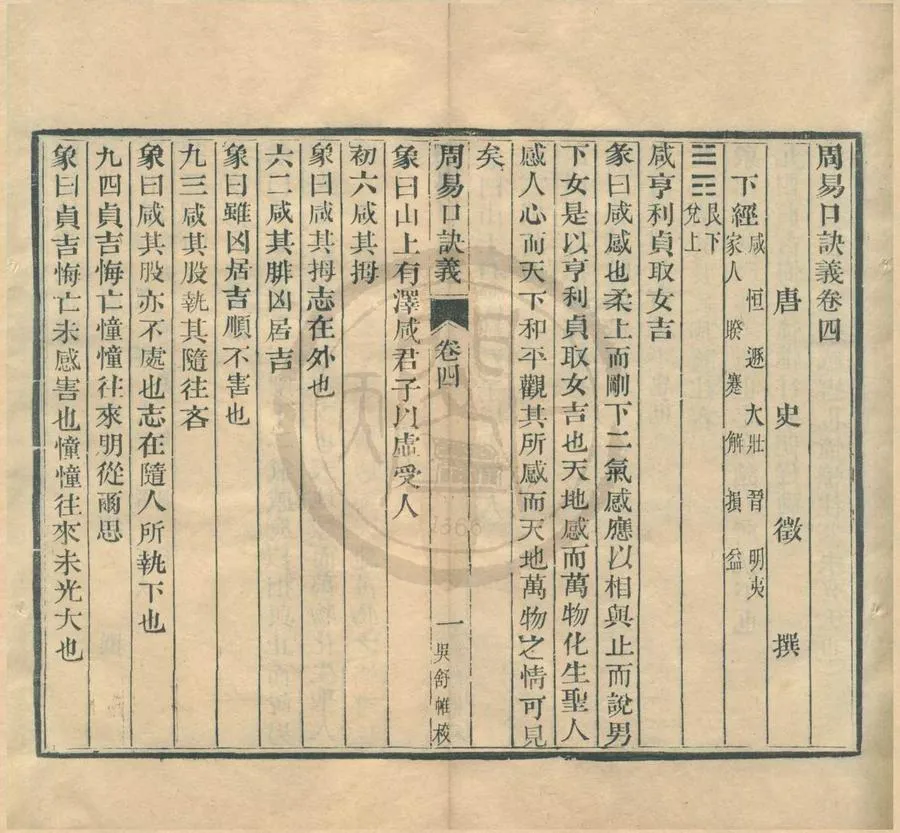 周易口訣義卷四
唐史徵撰
下經咸恒遯大壯晉明夷
家人睽蹇解損益
䷞艮下
兌上
咸亨利貞取女吉
彖曰咸感也柔上而剛下二氣感應以相與止而說男
下女是以亨利貞取女吉也天地感而萬物化生聖人
感人心而天下和平觀其所感而天地萬物之情可見
矣
周易口訣義 卷四 一 吳舒帷校
象曰山上有澤咸君子以虛受人
初六咸其拇
象曰咸其拇志在外也
六二咸其腓凶居吉
象曰雖凶居吉順不害也
九三咸其股執其隨往吝
象曰咸其股亦不處也志在隨人所執下也
九四貞吉悔亡憧憧往來朋從爾思
象曰貞吉悔亡未感害也憧憧往來未光大也
1368